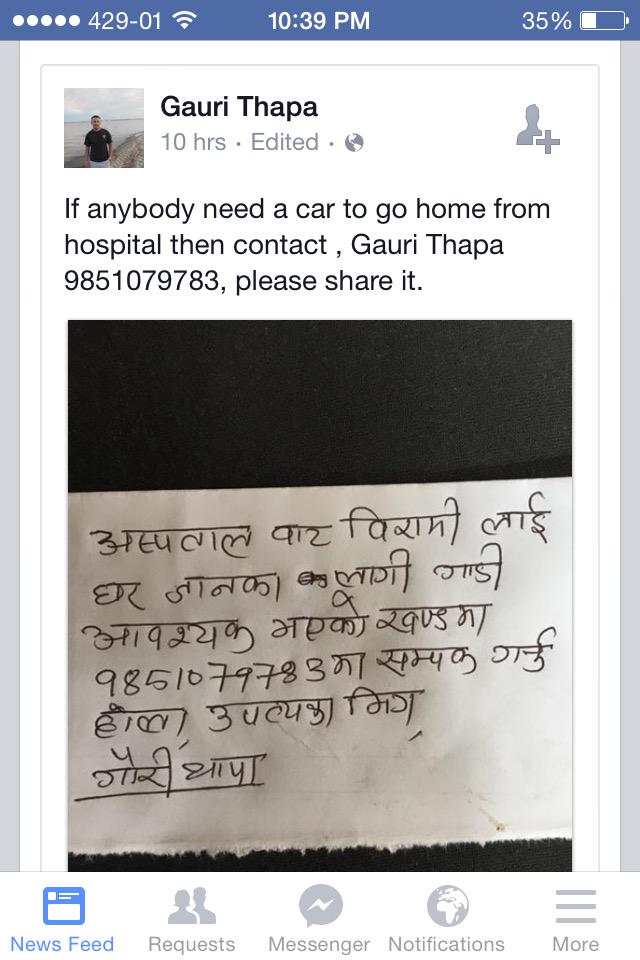 429-01 10:39 PM 35%
Gauri Thapa
10 hrs · Edited ·
If anybody need a car to go home from
hospital then contact , Gauri Thapa
9851079783, please share it.
अस्पताल बाट विरामी लाई
घर जानका लागी गाडी
आवश्यक भएको खण्डमा
9851079783मा सम्पर्क गर्नु
होला, उपत्यका भित्र,
गौरी थापा
News Feed Requests Messenger Notifications More